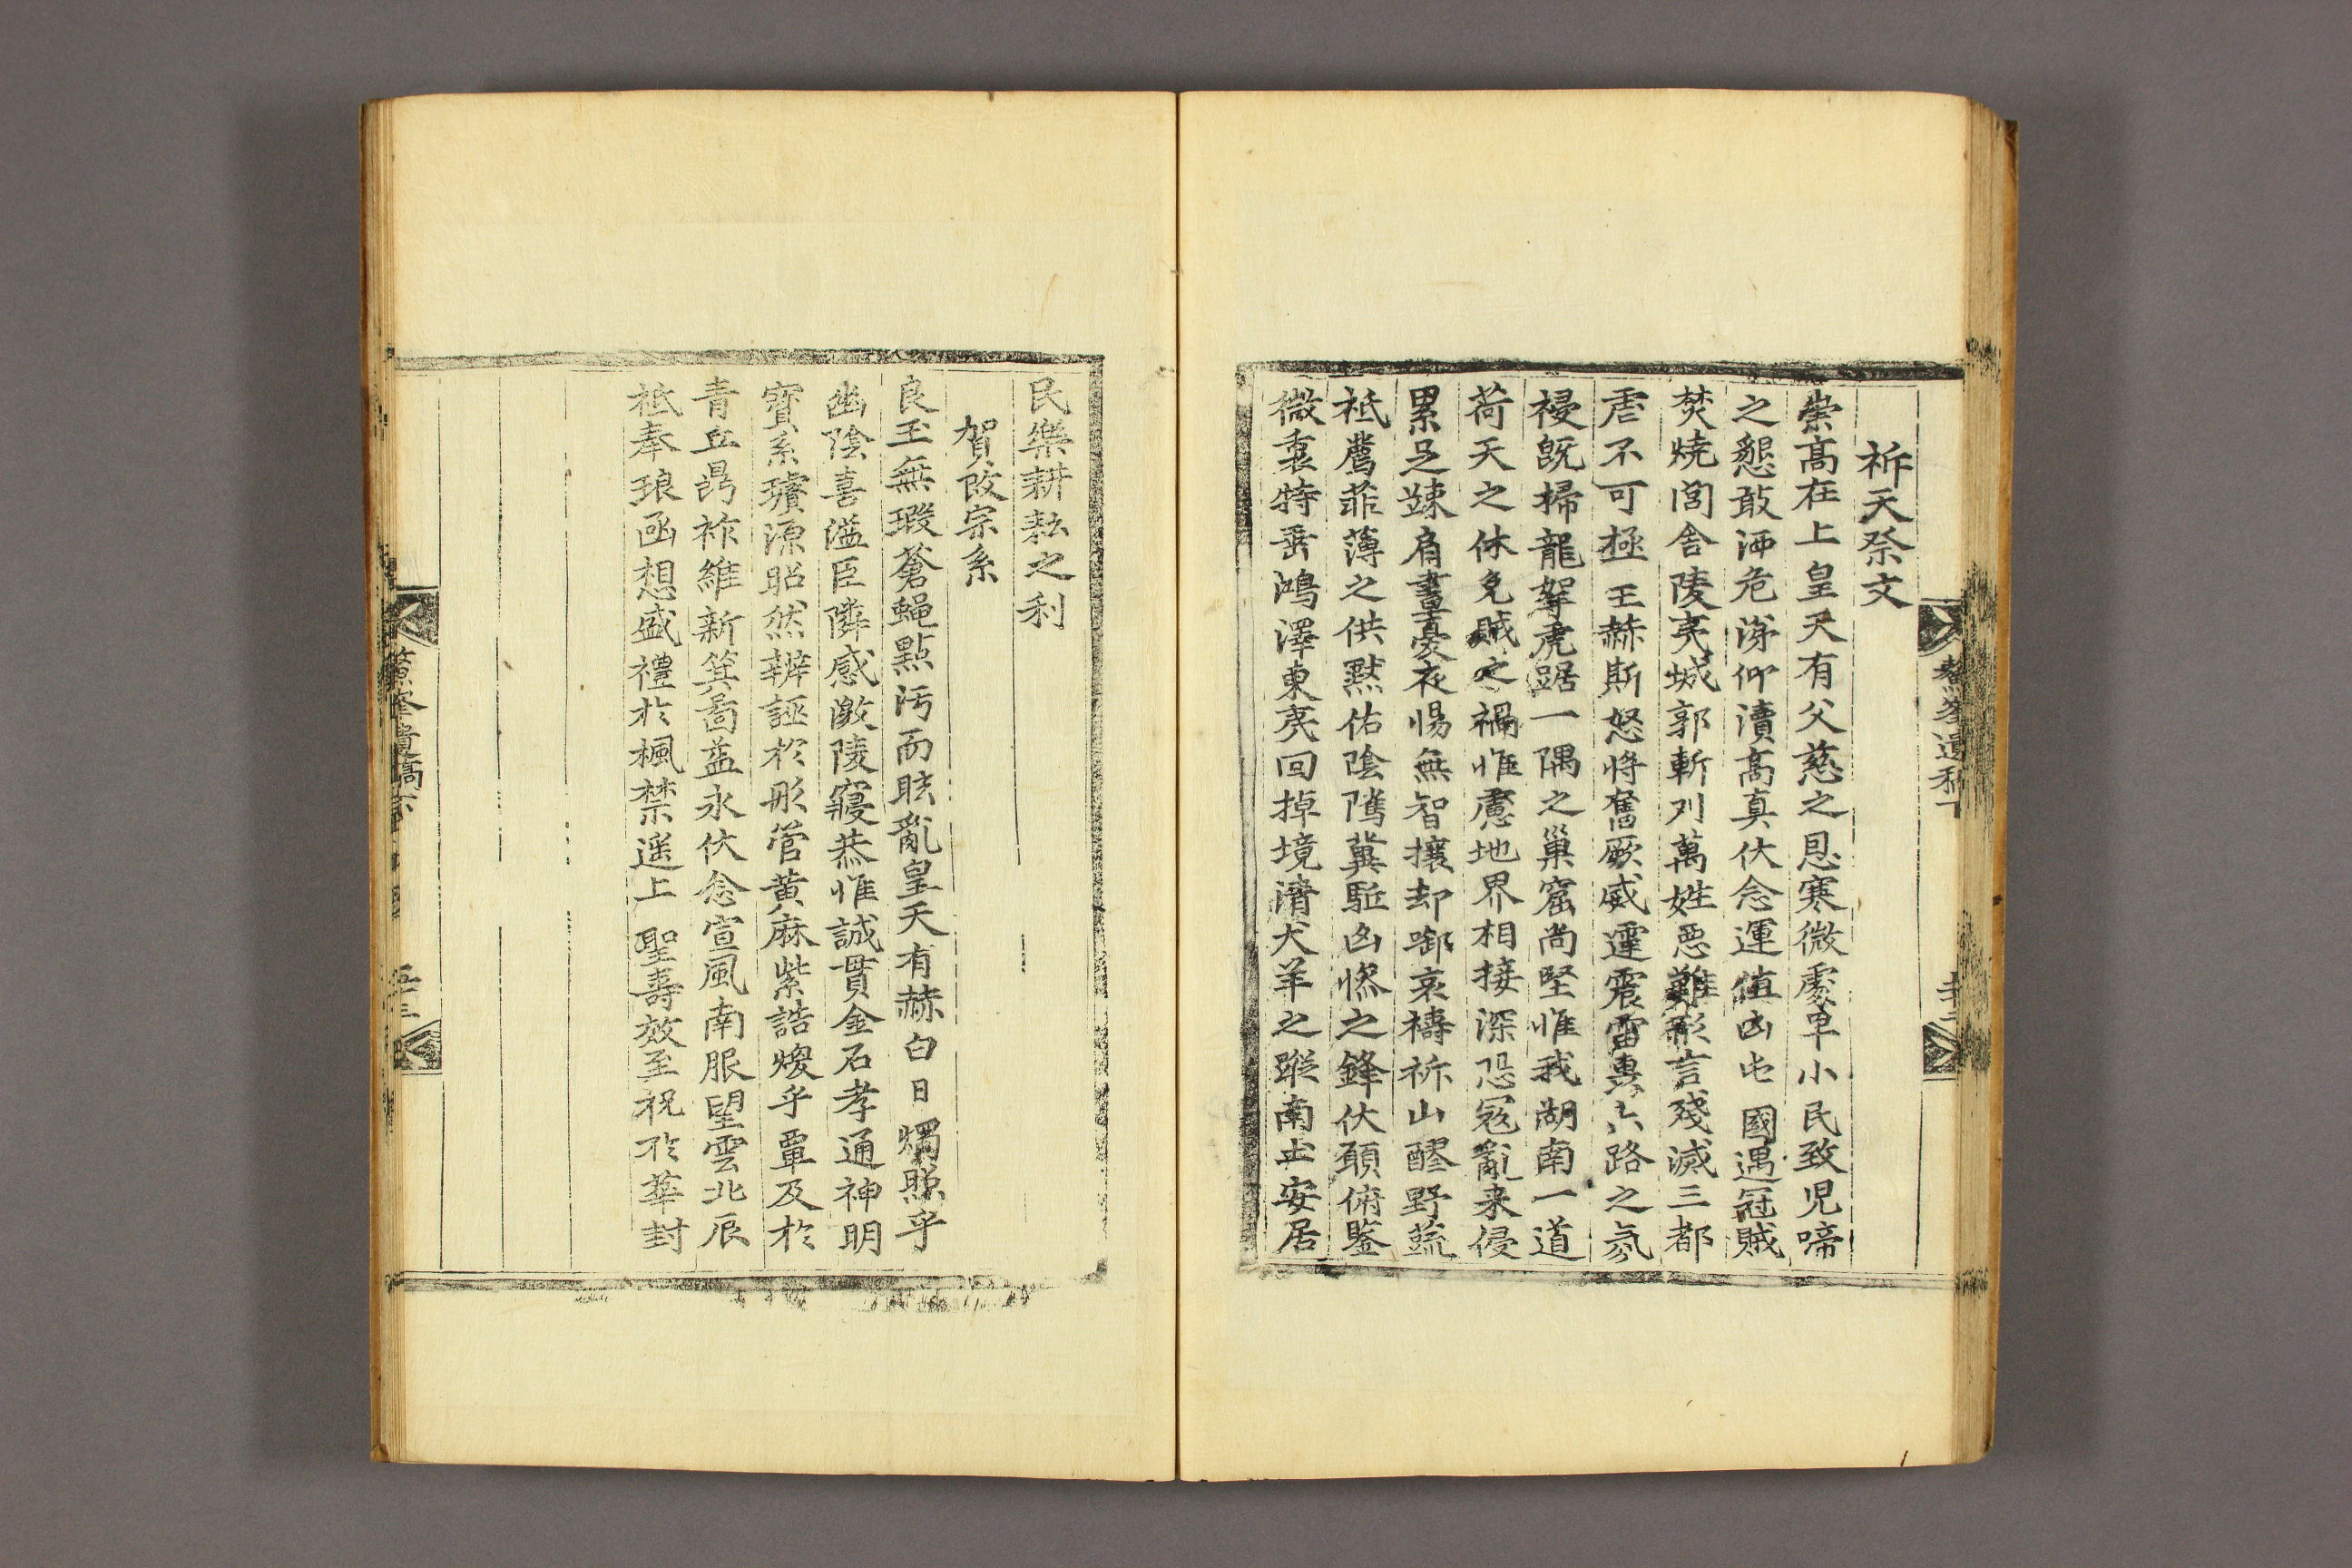 祈天祭文
崇高在上皇天有父慈之恩寒微處卑小民致児啼
之懇敢洒危涕仰瀆高真伏念運值凶屯 國遇冠賊
焚燒閭舎陵夷城郭斬刈萬姓惡難形言殘滅三都
虐不可極 王赫斯怒將奮厥威霆震雷轟六路之氛
祲旣掃龍拏虎踞一隅之巢窟尚堅惟我湖南一道
荷天之休免賊之禍惟慮地界相接深恐冦亂来侵
累足竦肩晝憂夜惕無智攘却啣哀禱祈山醪野蔬
祇薦菲薄之供黙佑陰隲冀駈凶慘之鋒伏願俯鑒
微衷特垂鴻澤東夷回掉境淸犬羊之蹤南土安居
民樂耕耘之利
賀改宗系
良玉無瑕蒼蝇點汚而眩亂皇天有赫白日燭照乎
幽陰喜溢臣隣感激陵寢恭惟誠貫金石孝通神明
寶系璿源昭然辨誣於彤管黄麻紫誥煥乎覃及於
青丘鼎祚維新箕啚益永伏念宣風南服望雲北辰
祗奉琅凾想盛禮於楓禁遥上 聖壽效至祝於華封